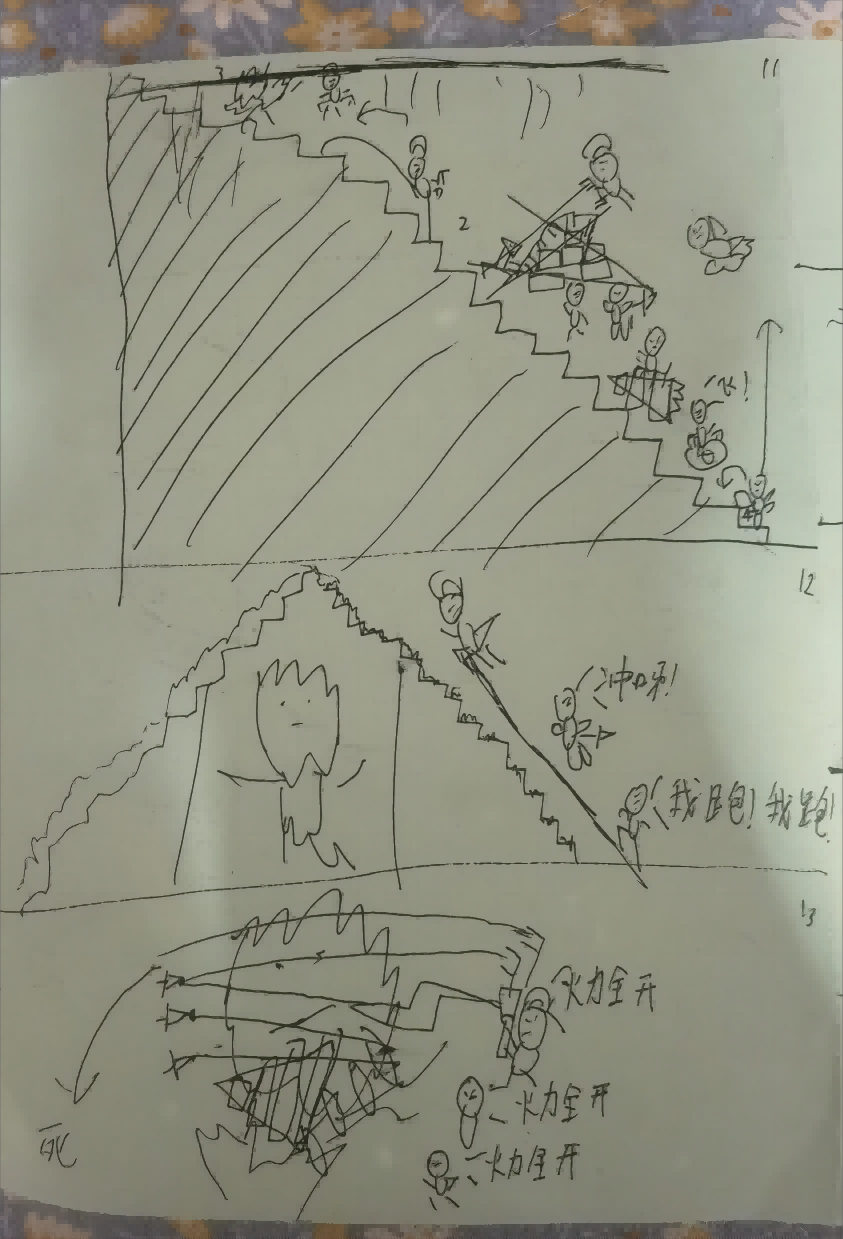 11
3
2
飞！
12
冲呀！
我跑！我跑！
13
火力全开
火力全开
火力全开
死